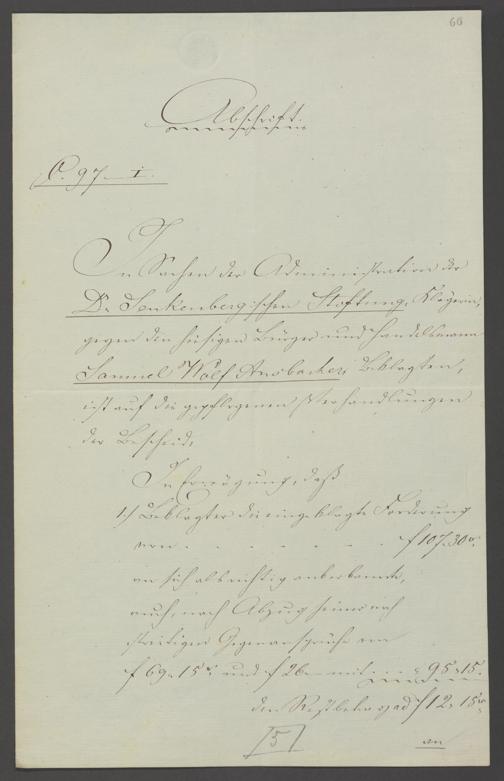 60
Abschrift.
C. 97. I.
In Sachen der Administration der
Dr. Senkenbergischen Stiftung, Klägerin,
gegen den hiesigen Bürger und Handelsmann
Samuel Wolf Ansbacher, Beklagten,
ist auf die gepflogenen Verhandlungen
der Bescheid:
In Erwägung, daß
1.) Beklagter die eingeklagte Forderung
von . . . . . . f 107. 30 xr.
an sich als richtig anerkannte,
auch, nach Abzug seiner
streitigen Gegenansprüche von
f 69. 15 xr und f 26 mit . . . 95. 15.
den Restbetrag ad f 12. 15 xr
[5]
an